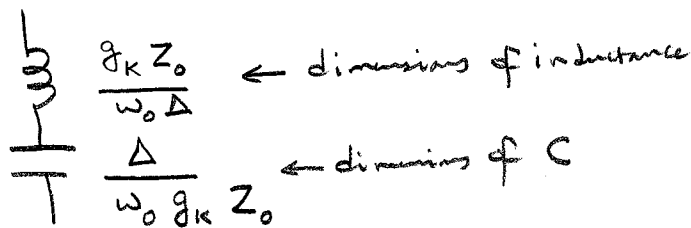 g_K Z_0 / ω_0 Δ ← dimensions of inductance
Δ / ω_0 g_K Z_0 ← dimensions of C